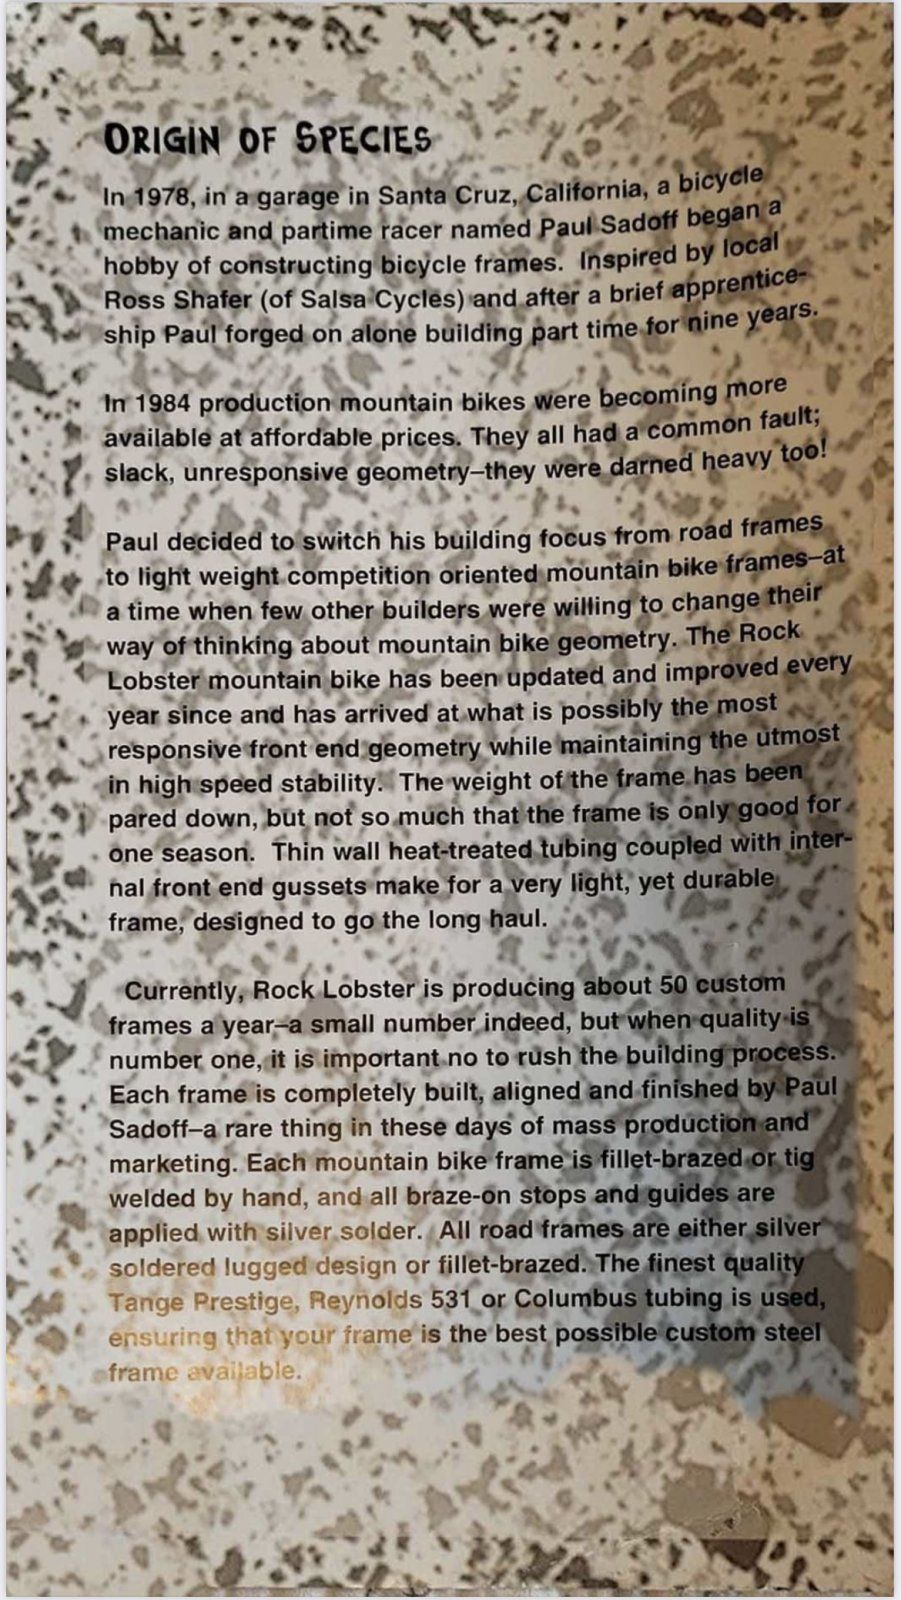 ORIGIN OF SPECIES
In 1978, in a garage in Santa Cruz, California, a bicycle
mechanic and partime racer named Paul Sadoff began a
hobby of constructing bicycle frames.  Inspired by local
Ross Shafer (of Salsa Cycles) and after a brief apprentice-
ship Paul forged on alone building part time for nine years.
In 1984 production mountain bikes were becoming more
available at affordable prices. They all had a common fault;
slack, unresponsive geometry–they were darned heavy too!
Paul decided to switch his building focus from road frames
to light weight competition oriented mountain bike frames–at
a time when few other builders were willing to change their
way of thinking about mountain bike geometry. The Rock
Lobster mountain bike has been updated and improved every
year since and has arrived at what is possibly the most
responsive front end geometry while maintaining the utmost
in high speed stability.  The weight of the frame has been
pared down, but not so much that the frame is only good for
one season.  Thin wall heat-treated tubing coupled with inter-
nal front end gussets make for a very light, yet durable
frame, designed to go the long haul.
Currently, Rock Lobster is producing about 50 custom
frames a year–a small number indeed, but when quality is
number one, it is important no to rush the building process.
Each frame is completely built, aligned and finished by Paul
Sadoff–a rare thing in these days of mass production and
marketing. Each mountain bike frame is fillet-brazed or tig
welded by hand, and all braze-on stops and guides are
applied with silver solder.  All road frames are either silver
soldered lugged design or fillet-brazed. The finest quality
Tange Prestige, Reynolds 531 or Columbus tubing is used,
ensuring that your frame is the best possible custom steel
frame available.